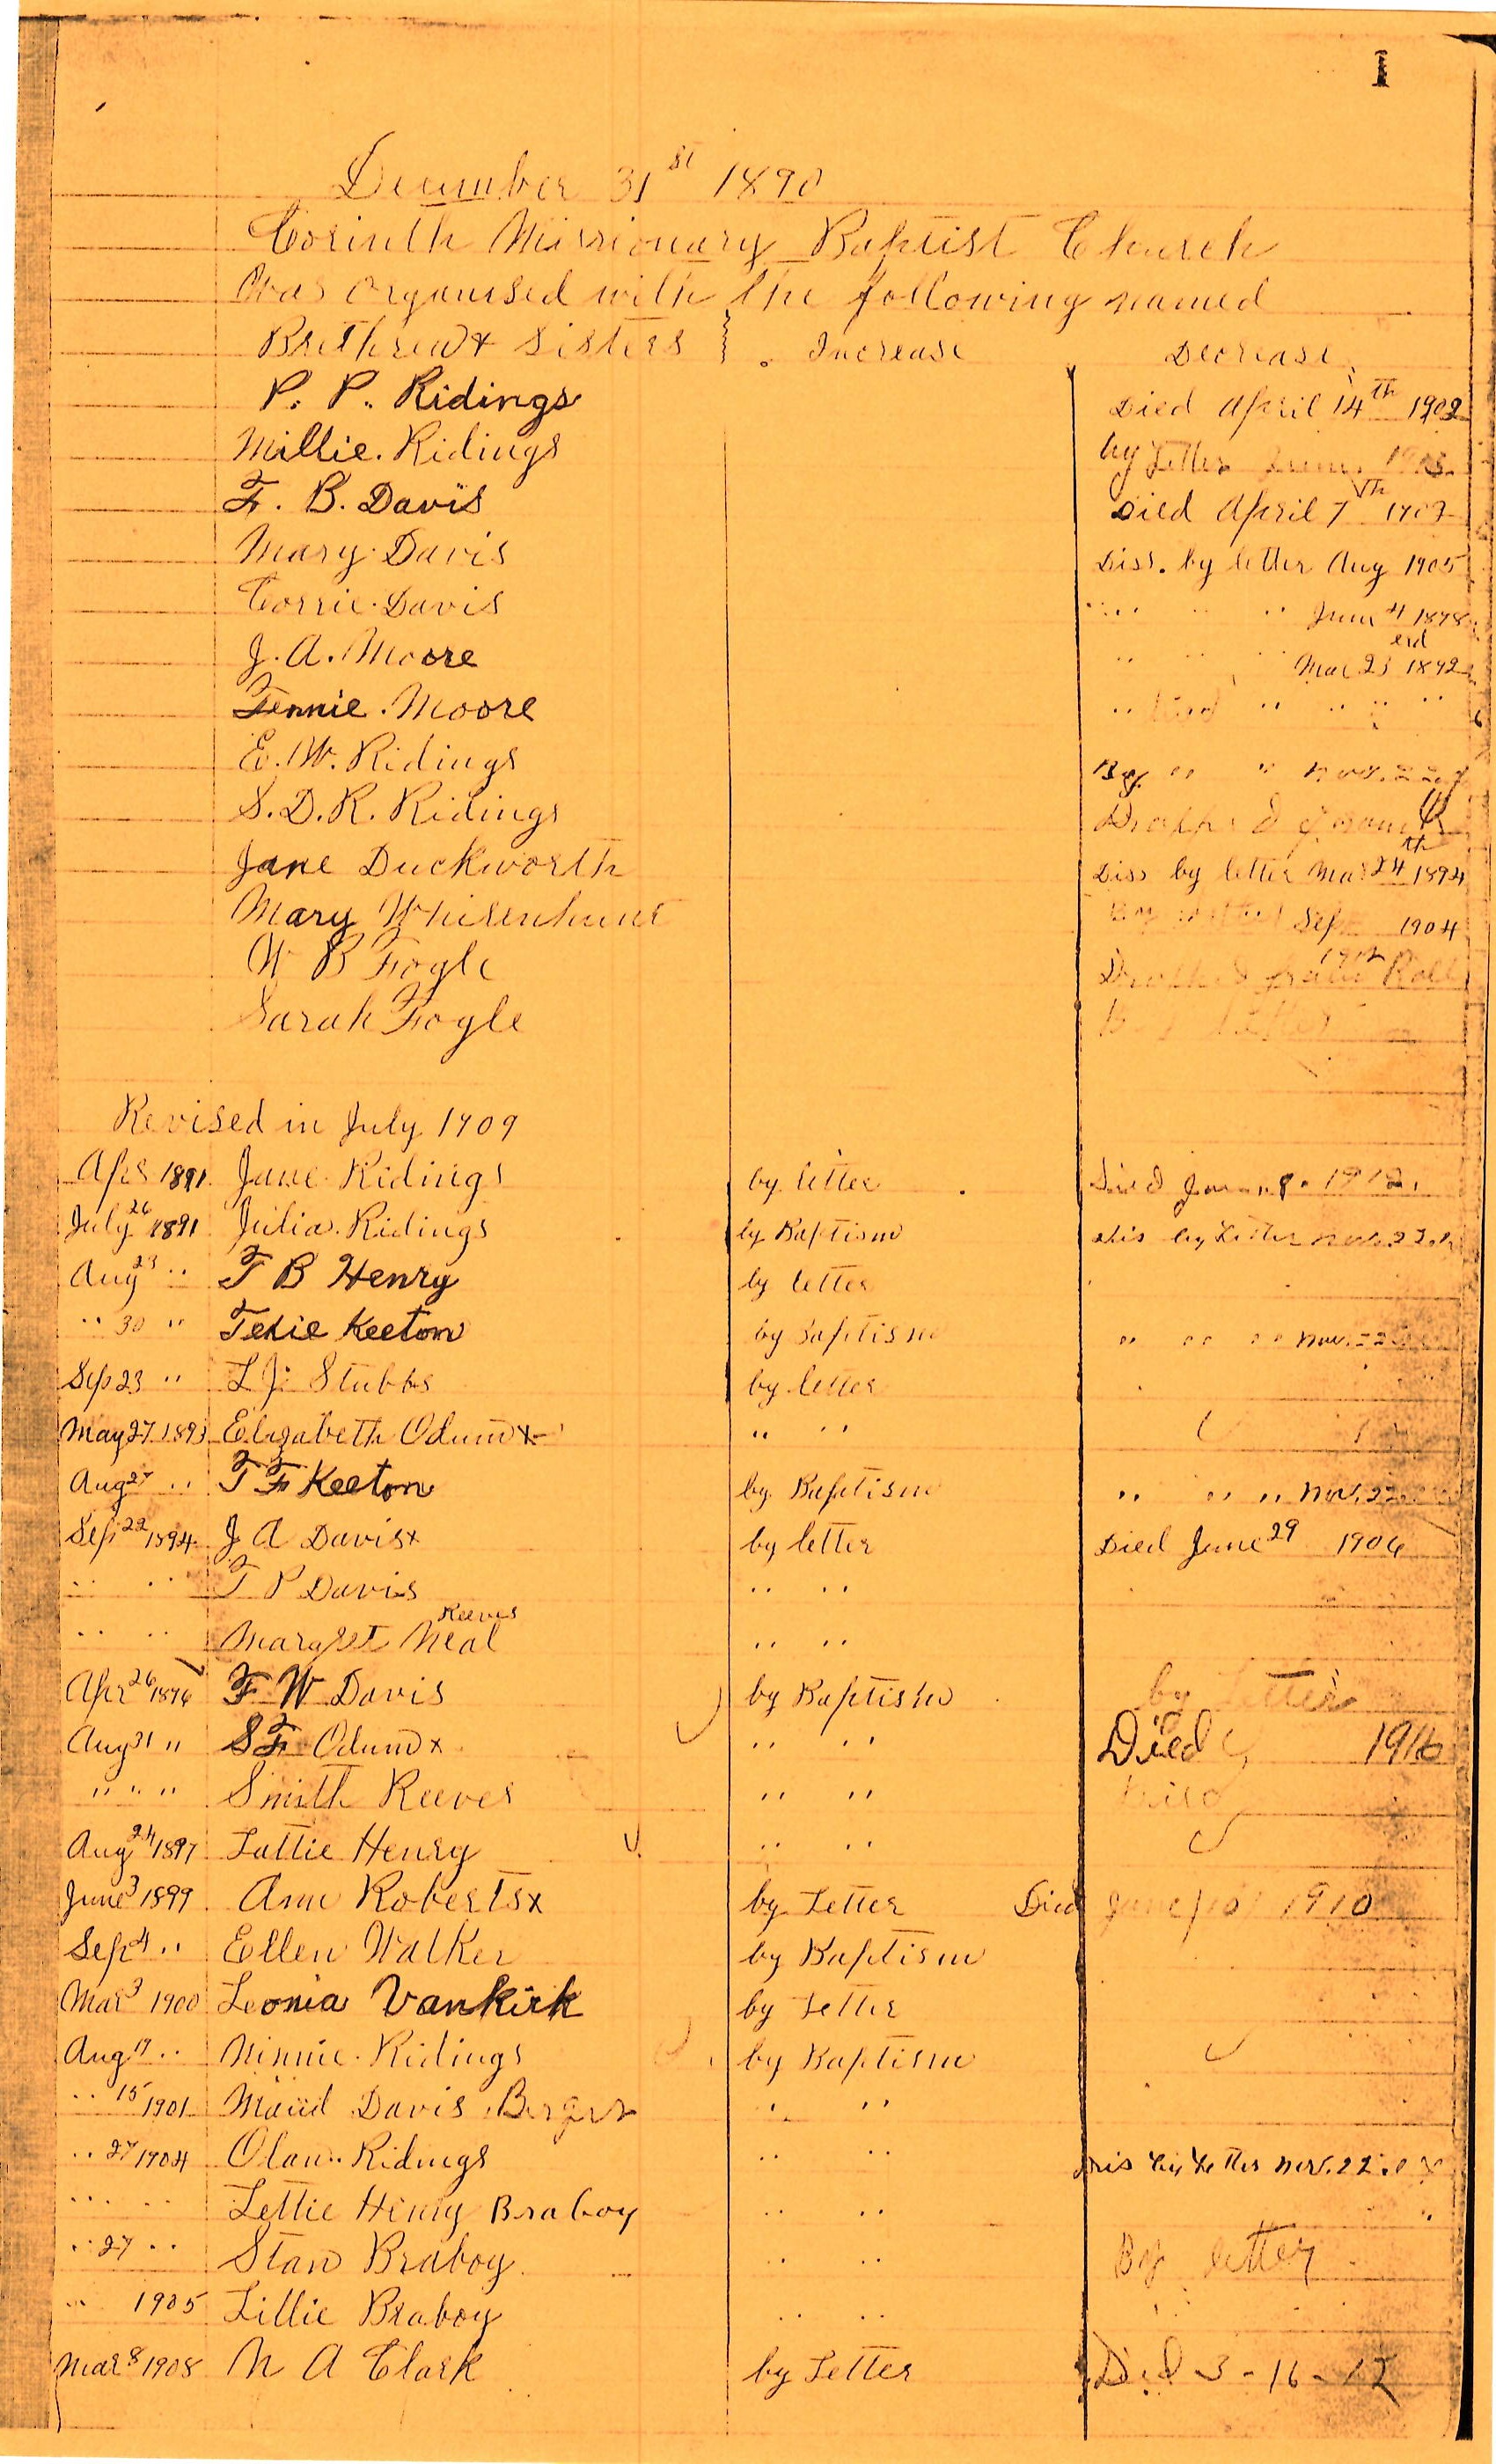 1
December 31st 1890
Corinth Missionary Baptist Church
Was organised with the following named
Brethren & Sisters Increase Decrease
P. P. Ridings Died April 14th 1902
Millie Ridings by Letter
F. B. Davis Died April 7th 1907
Mary Davis Diss. by letter Aug 1905
Corrie Davis " " " June 4 1898
J. A. Moore " " " Mar 23erd 1892
Fennie Moore " " " "
E. W. Ridings By " " Nov. 22
S. D. R. Ridings
Jane Duckworth Diss by letter Mar 24th 1894
Mary Whisenhunt Sep 1904
W B Fogle Roll
Sarah Fogle By letter
Revised in July 1909
Apr 1891 Jane Ridings by letter Died Jan 1912
July 26 1891 Julia Ridings by Baptism Dis by Letter Nov. 22
Aug 23 " T B Henry by letter
" 30 " Texie Keeton by Baptism " " " Nov. 22
Sep 23 " L J Stubbs by letter
May 27 1893 Elizabeth Odum x " "
Aug 27 " T F Keeton by Baptism " " " Nov. 22
Sep 22 1894 J A Davis x by letter Died June 29 1906
" " T P Davis " "
" " Margret Neal Reeves " "
Apr 26 1896 F W Davis by Baptism by Letter
Aug 31 " S F Odum x " " Died 1916
" " " Smith Reeves " " Died
Aug 24 1897 Lattie Henry " "
June 3 1899 Ann Roberts x by Letter Died June 10 1910
Sep 4 " Ellen Walker by Baptism
Mar 3 1900 Leonia Vankirk by Letter
Aug 19 " Minnie Ridings by Baptism
" 15 1901 Maud Davis Berger " "
" 27 1904 Olan Ridings " " Dis by Letter Nov. 22
" " Lettie Henry Braboy " "
" 27 " Stan Braboy " " By letter
" 1905 Lillie Braboy " "
Mar 8 1908 N A Clark by Letter Died 3-16-12